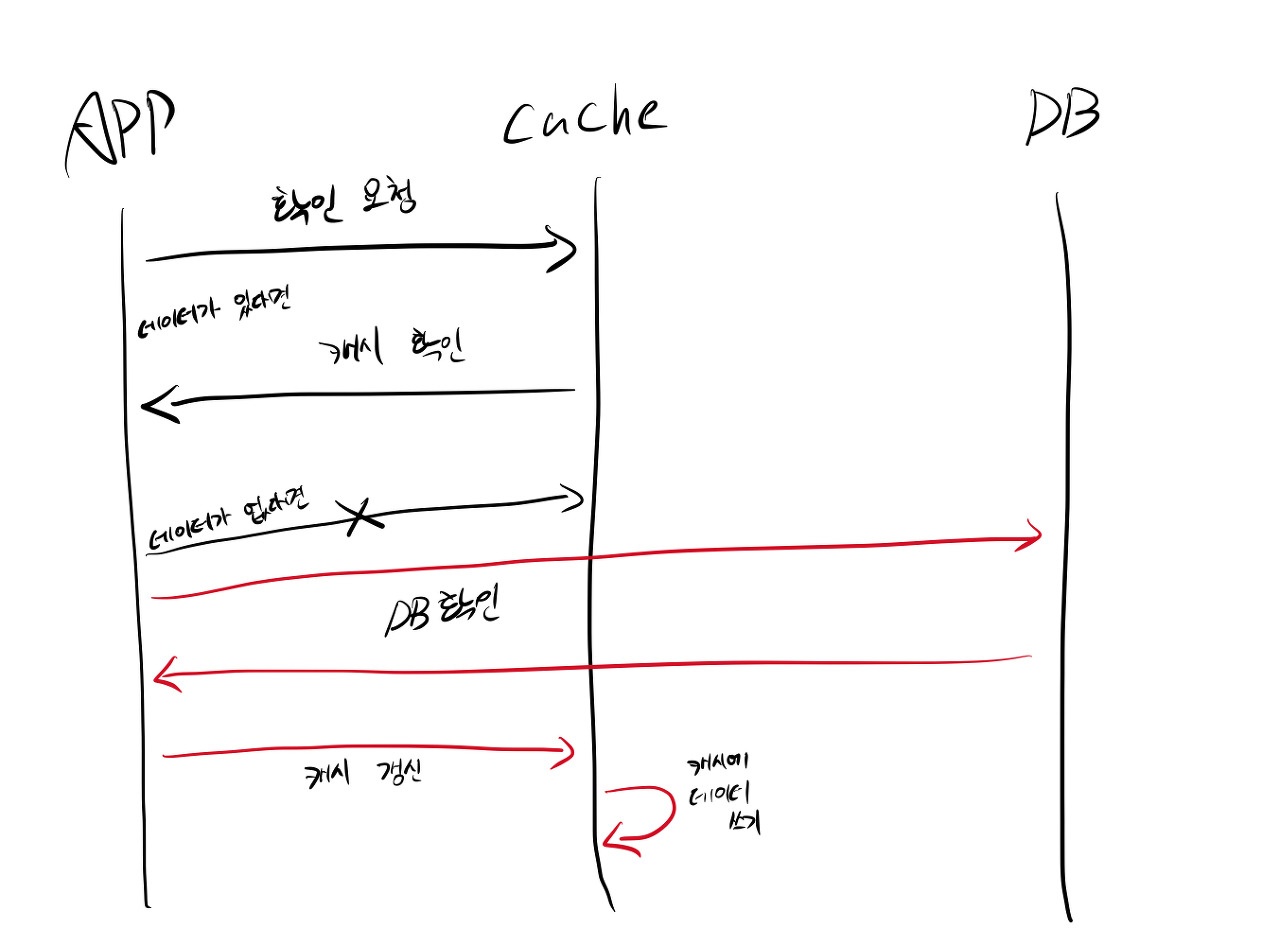 APP
Cache
DB
확인 요청
데이터가 있다면
캐시 확인
데이터가 없다면
DB 확인
캐시 갱신
캐시에
데이터
쓰기